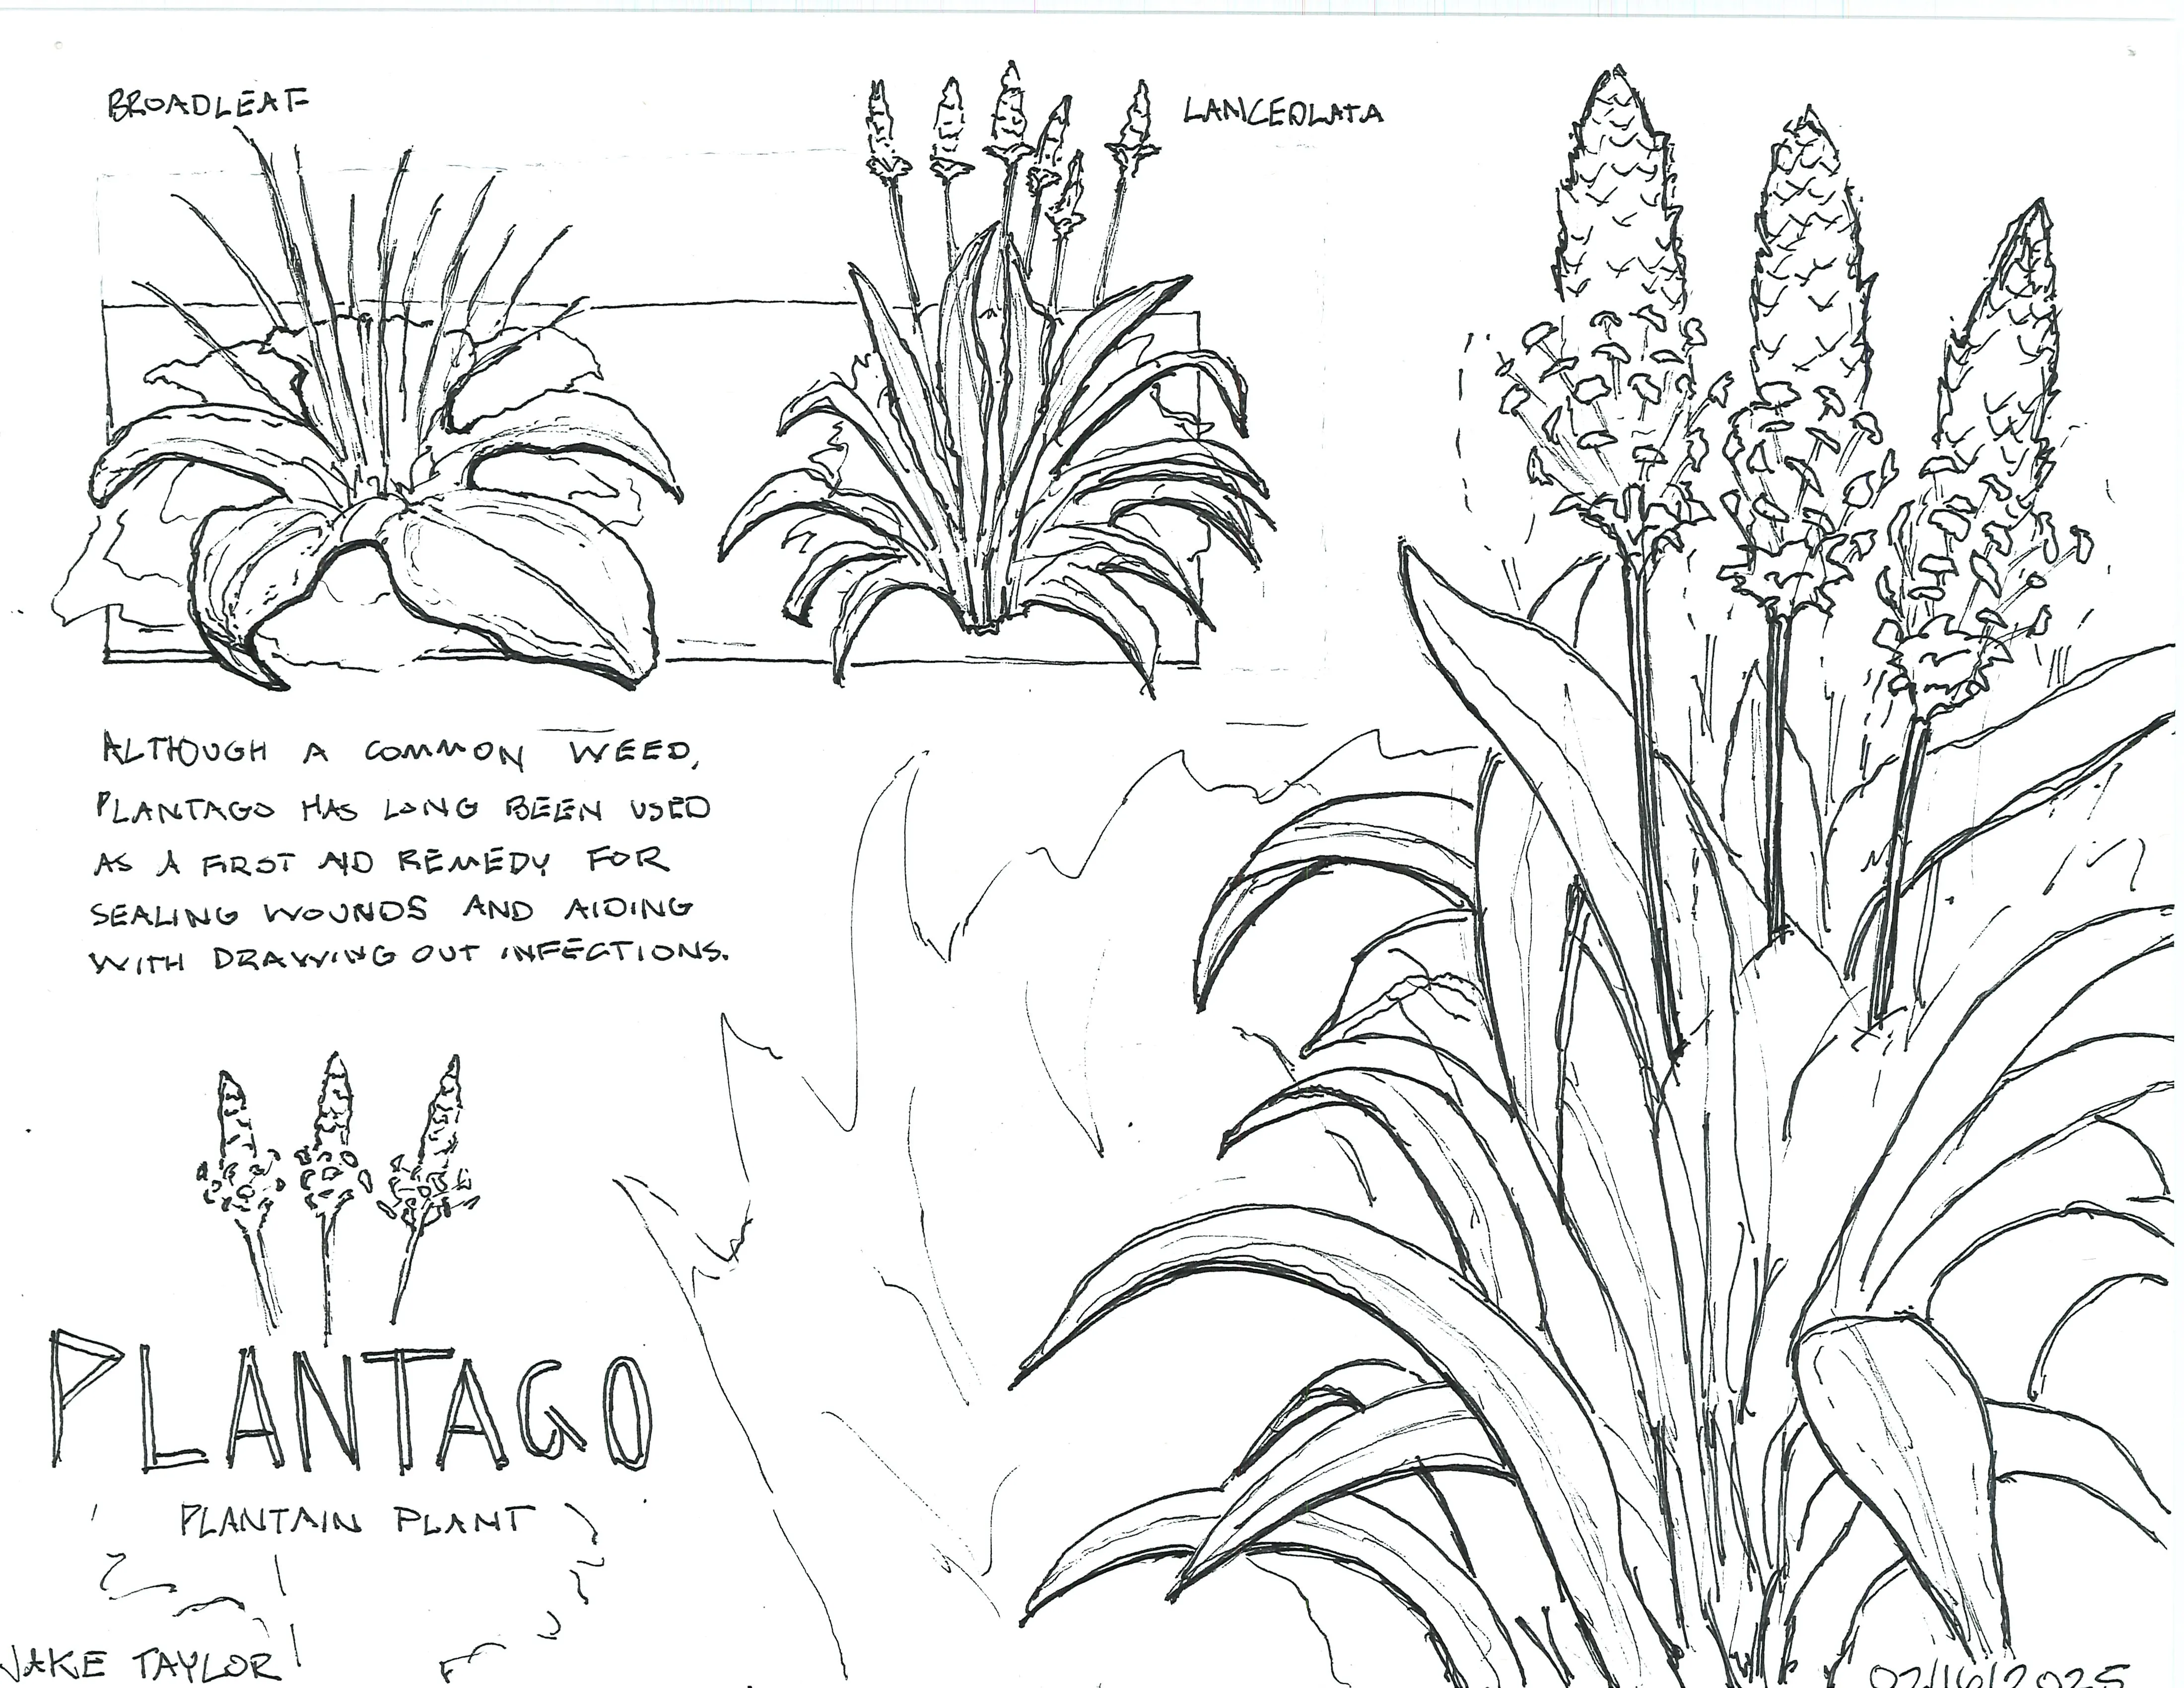 BROADLEAF
LANCEOLATA
ALTHOUGH A COMMON WEED,
PLANTAGO HAS LONG BEEN USED
AS A FIRST AID REMEDY FOR
SEALING WOUNDS AND AIDING
WITH DRAWING OUT INFECTIONS.
PLANTAGO
PLANTAIN PLANT
JAKE TAYLOR
02/16/2025